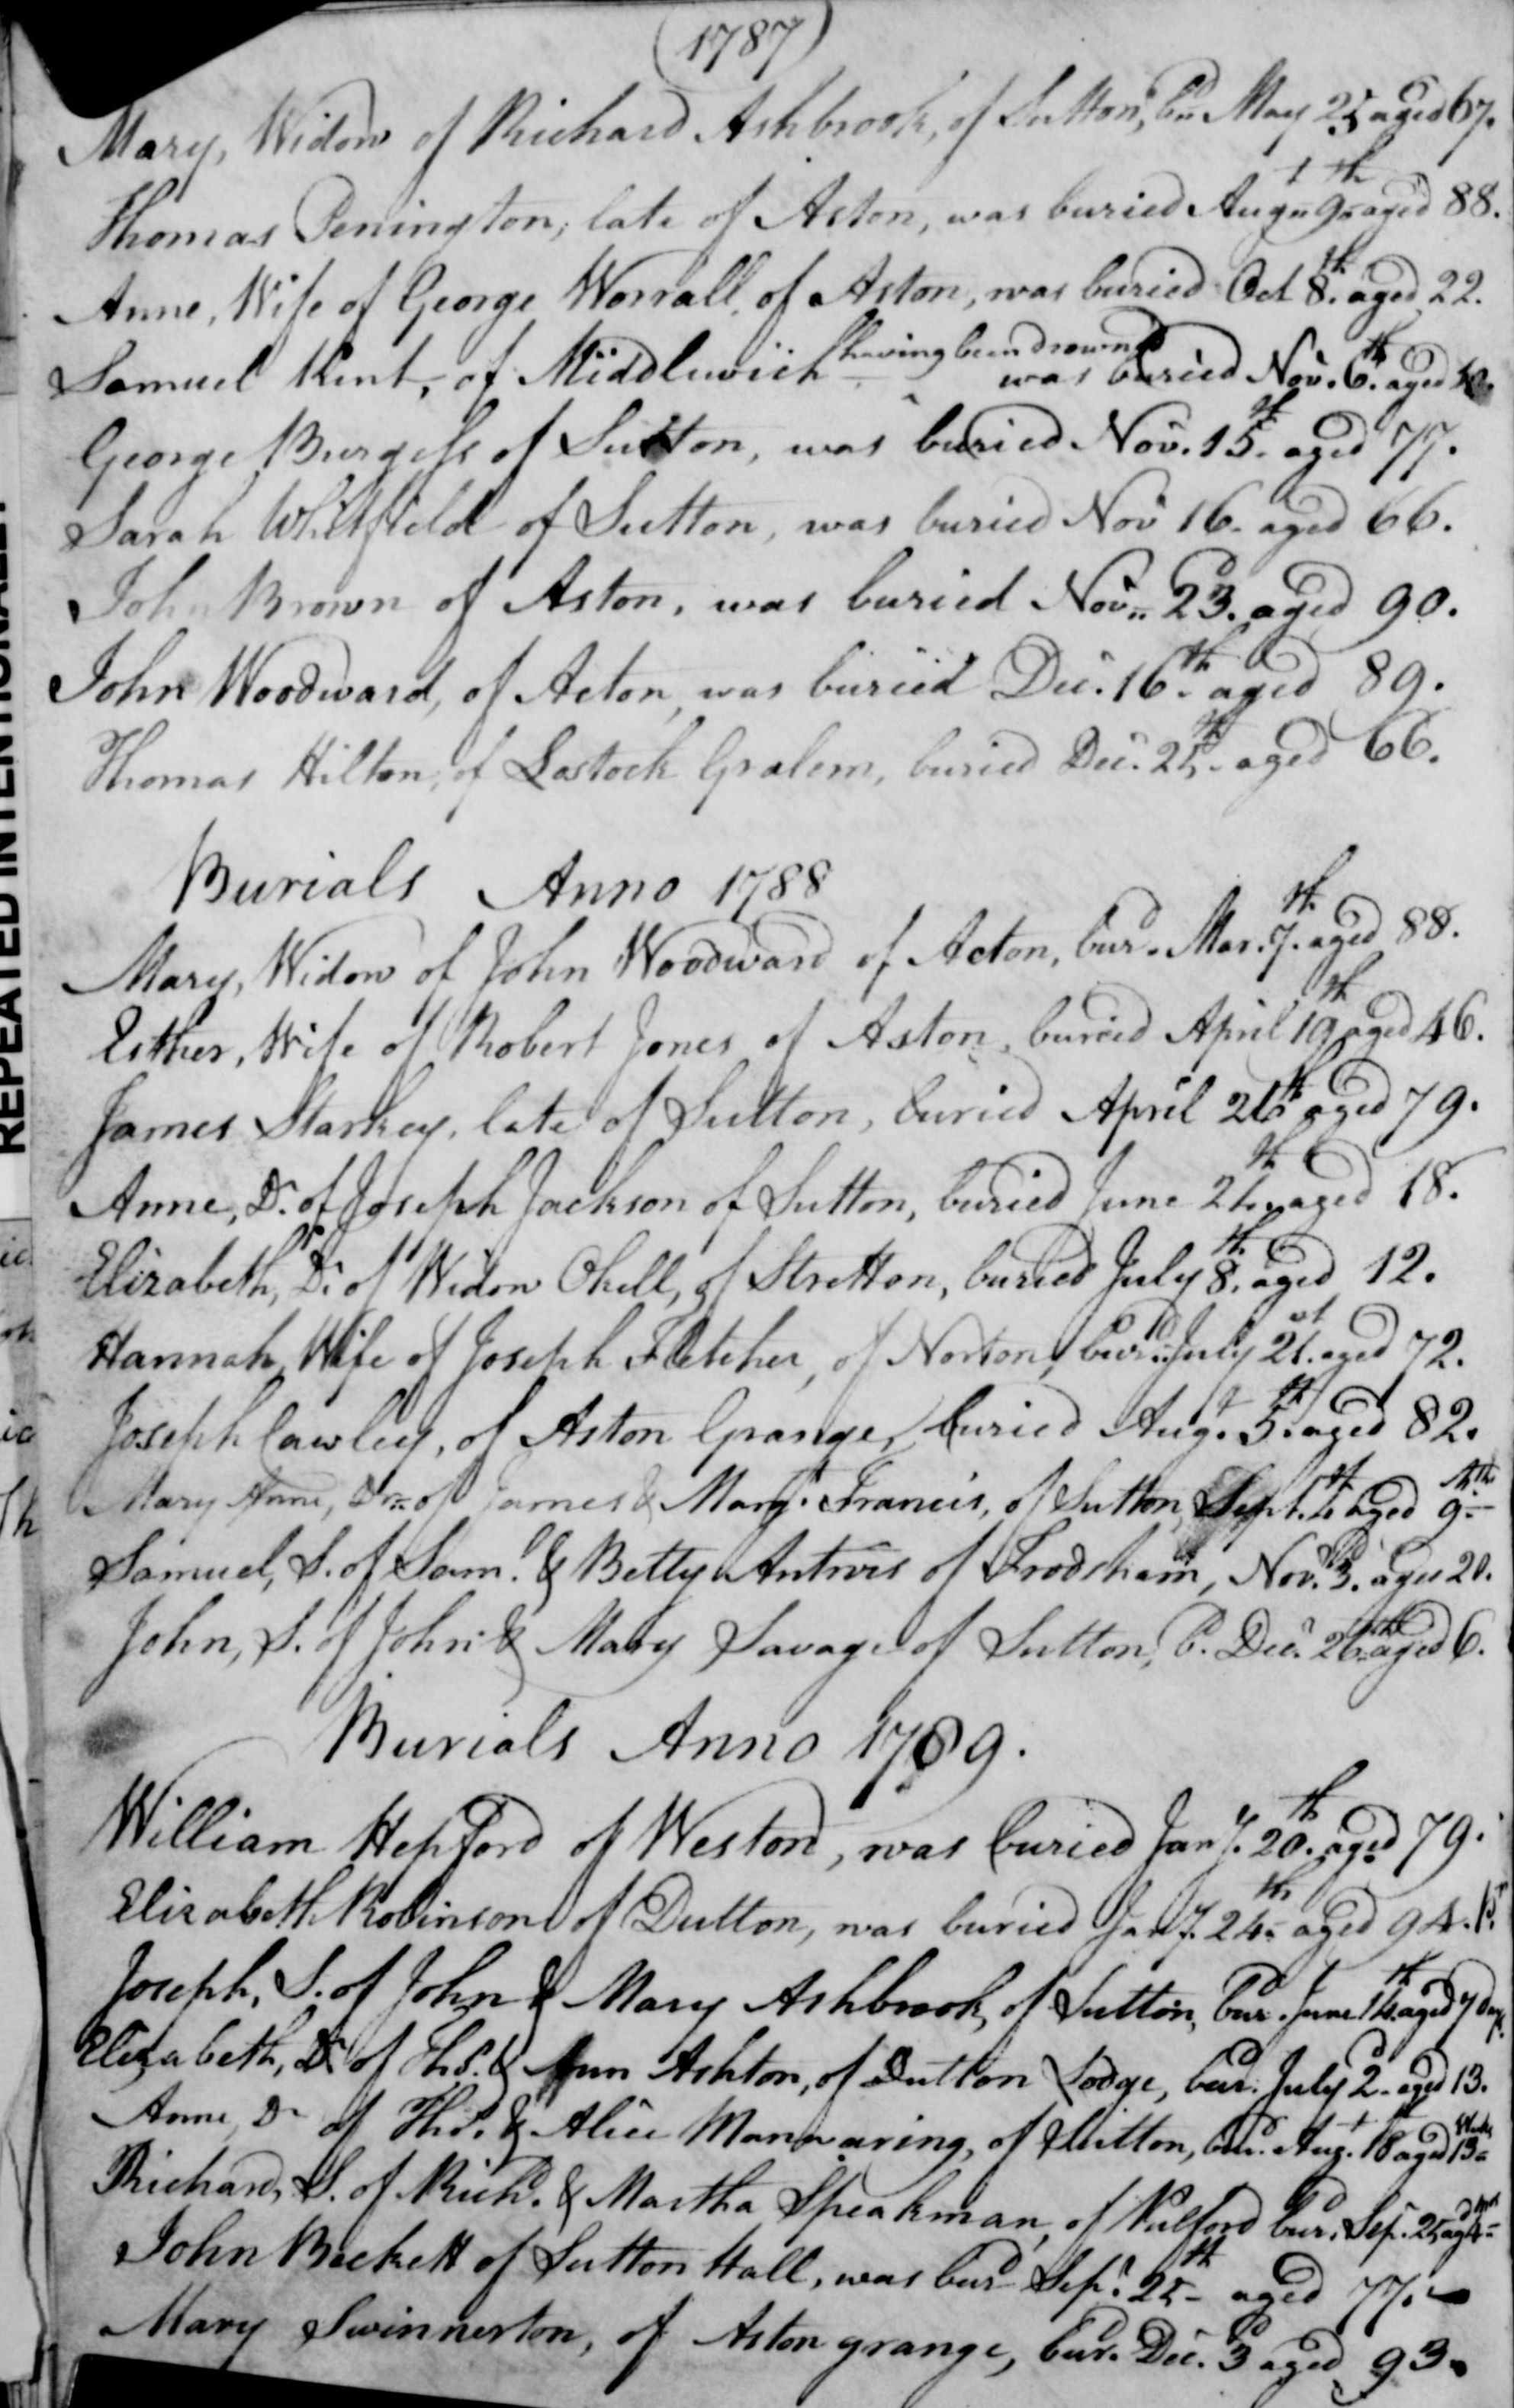 (1787)
Mary, Widow of Richard Ashbrook, of Sutton, bu.d May 25 aged 67.
Thomas Penington, late of Aston, was buried Aug.t 9th aged 88.
Anne, Wife of George Worrall, of Aston, was buried Oct 8th. aged 22.
having been drowned
Samuel Kent, of Middlewich was buried Nov. 6th. aged
George Burgess of Sutton, was buried Nov. 15th. aged 77.
Sarah Whitfield of Sutton, was buried Nov 16. aged 66.
John Brown of Aston, was buried Nov. 23d. aged 90.
John Woodward, of Acton, was buried Dec. 16th. aged 89.
Thomas Hilton, of Lostock Gralem, buried Dec. 25th. aged 66.
Burials Anno 1788
Mary, Widow of John Woodward of Acton, bur.d Mar. 7th. aged 88.
Esther, Wife of Robert Jones of Aston, buried April 19th aged 46.
James Starkey, late of Sutton, buried April aged 79.
Anne, Dr. of Joseph Jackson of Sutton, buried June 24th. aged 18.
Elizabeth, Dr. of Widow Okell, of Stretton, buried July 8th. aged 12.
Hannah, Wife of Joseph Fletcher, of Norton, bur.d July 21st. aged 72.
Joseph Cawley, of Aston Grange, buried Aug.t 5th. aged 82.
Mary Anne, Dr. of James & Mary Francis, of Sutton, Sept. aged 9 Mths
Samuel, S. of Sam.l & Betty Antwis of Frodsham, Nov. 3d. aged 20.
John, S. of John & Mary Savage of Sutton, b. Dec. 26th aged 6.
Burials Anno 1789.
William Hepford of Weston, was buried Jany. 20th. aged 79.
Elizabeth Robinson of Dutton, was buried Jany. 24th. aged 94.
Joseph, S. of John & Mary Ashbrook, of Sutton, bur.d June 14th. aged 7 days
Elizabeth, Dr. of Ths. & Ann Ashton, of Dutton Lodge, bur.d July 2d. aged 13.
Anne, Dr. of Thos. & Alice Manwaring, of Sutton, bur.d Aug.t 18th aged 13 Weeks
Richard, S. of Rich.d & Martha Speakman, of Pulford bur.d Sep. 25 aged
John Beckett of Sutton Hall, was bur.d Sep.r 25th aged 77.
Mary Swinnerton, of Aston grange, bur.d Dec. 3d aged 93.
REPEATED INTENTIONALLY